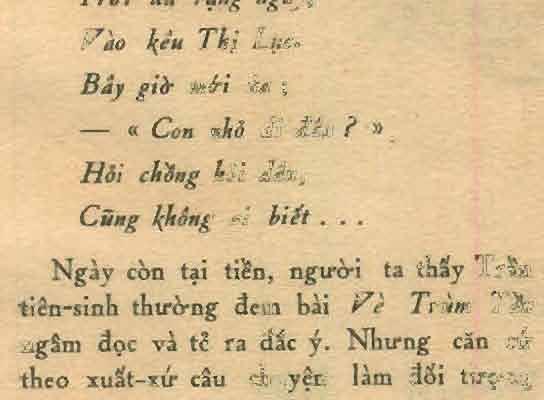 Vào kêu Thị Lục.
Bây giờ mới
— « Con nhỏ đi đâu ? »
Hỏi chồng hỏi dân,
Cũng không ai biết . . .
Ngày còn tại tiền, người ta thấy Trần
tiên-sinh thường đem bài Vè Trùm
ngâm đọc và tỏ ra đắc ý. Nhưng căn cứ
theo xuất-xứ câu chuyện làm đối tượng